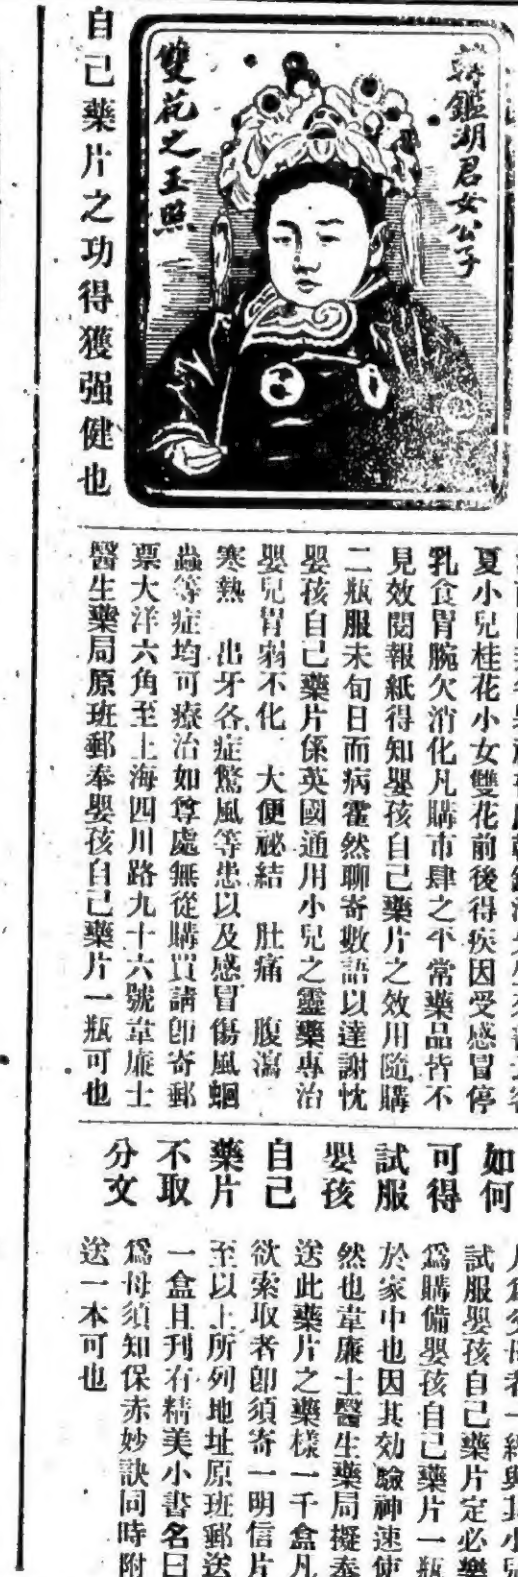 韓鑑湖君女公子
雙花之玉照
自己藥片之功得獲强健也
夏小兒桂花小女雙花前後得疾因受感冒停
乳食胃腕欠消化凡購市肆之平常藥品皆不
見效閱報紙得知嬰孩自己藥片之效用隨購
二瓶服未旬日而病霍然聊寄數語以達謝忱
嬰孩自己藥片係英國通用小兒之靈藥專治
嬰兒胃弱不化 大便祕結 肚痛 腹瀉
寒熱 出牙各症驚風等患以及感冒傷風蛔
蟲等症均可療治如尊處無從購買請卽寄郵
票大洋六角至上海四川路九十六號韋廉士
醫生藥局原班郵奉嬰孩自己藥片一瓶可也
如何
可得
試服
嬰孩
自己
藥片
不取
分文
試服嬰孩自己藥片定必樂
爲購備嬰孩自己藥片一瓶
於家中也因其効驗神速使
然也韋廉士醫生藥局擬奉
送此藥片之藥樣一千盒凡
欲索取者卽須寄一明信片
至以上所列地址原班郵送
一盒且刋有精美小書名曰
爲母須知保赤妙訣同時附
送一本可也